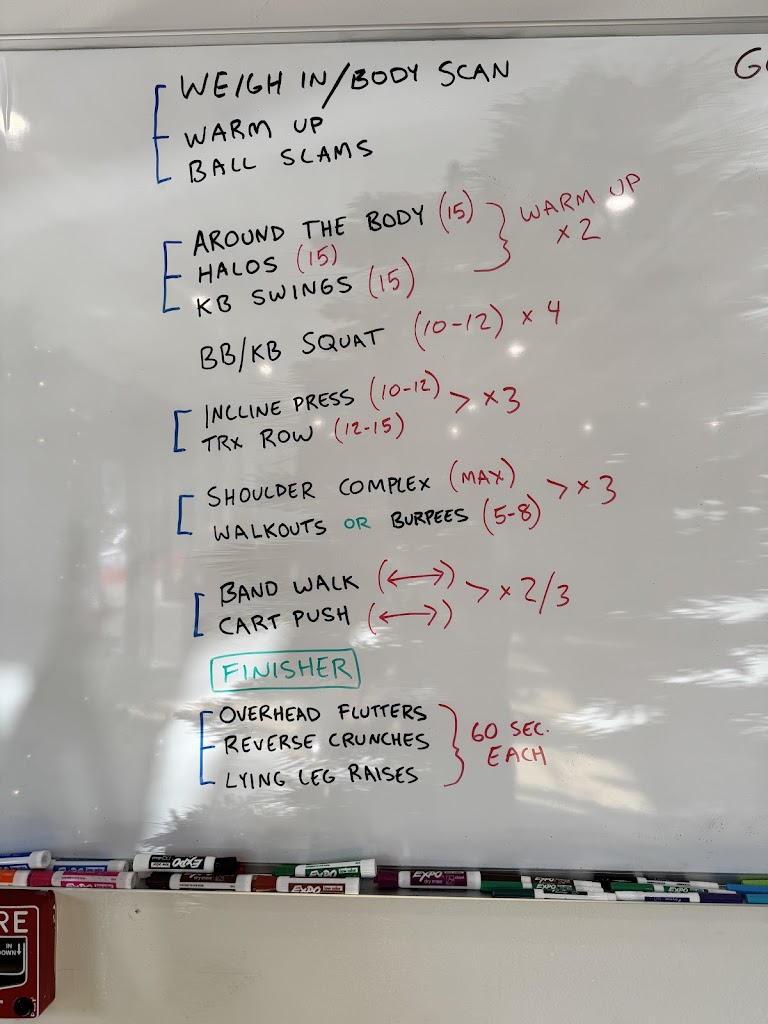 WEIGH IN/BODY SCAN
WARM UP
BALL SLAMS
AROUND THE BODY (15)
HALOS (15)
KB SWINGS (15)
WARM UP
x2
BB/KB SQUAT (10-12) x 4
INCLINE PRESS (10-12)
TRX ROW (12-15)
> x3
SHOULDER COMPLEX (MAX)
WALKOUTS OR BURPEES (5-8)
> x3
BAND WALK (↔)
CART PUSH (↔)
> x 2/3
FINISHER
OVERHEAD FLUTTERS
REVERSE CRUNCHES
LYING LEG RAISES
60 SEC.
EACH
EXPO
EXPO
EXPO
RE
IN
DOWN